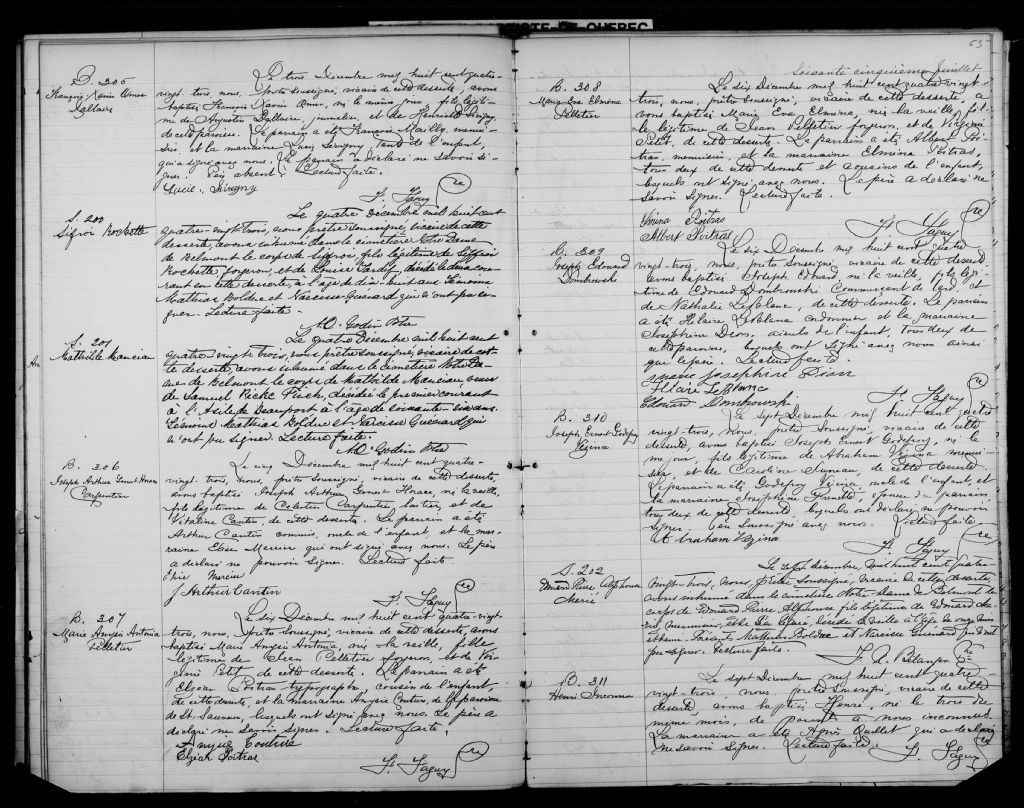 B. 305
François Xavier Omer
Dallaire
Le trois Décembre mil huit cent quatre-
vingt trois, nous, prêtre soussigné, vicaire de cette desserte, avons
baptisé François Xavier Omer, né le même jour, fils légiti-
me de Augustin Dallaire, journalier, et de Henriette Sivigny,
de cette paroisse. Le parrain a été François Mailly, menui-
sier, et la marraine Lucie Sevigny, tante de l'enfant,
qui a signé avec nous. Le parrain a déclaré ne savoir si-
gner. Père absent. Lecture faite.
Lucie Sivigny
F. Faguy
S. 200
Siffroi Rochette
Le quatre Décembre mil huit cent
quatre-vingt-trois, nous prêtre soussigné, vicaire de cette
desserte, avons inhumé dans le cimetière Notre Dame
de Belmont le corps de Siffroi, fils légitime de Siffroi
Rochette, forgeron, et de Louise Tardif, décédé le deux cou-
rant en cette desserte, à l'âge de dix-huit ans. Témoins
Mathias Bolduc et Narcisse Guenard qui n'ont pu si-
gner. Lecture faite.
M.O. Godin Ptre
S. 201
Mathilde Manciau
Le quatre Décembre mil huit cent
quatre vingt trois, nous prêtre soussigné, vicaire de cet-
te desserte, avons inhumé dans le cimetière Notre Da-
me de Belmont le corps de Mathilde Manciau, veuve
de Samuel Piché, décédée le premier courant
à l'Asile de Beauport à l'âge de soixante- ans.
Témoins Mathias Bolduc et Narcisse Guenard qui
n'ont pu signer. Lecture faite.
M.O. Godin Ptre
B. 306
Joseph Arthur Ernest Horace
Carpentier
Le cinq Décembre mil huit cent quatre-
vingt-trois, nous, prêtre soussigné, vicaire de cette desserte,
avons baptisé Joseph Arthur Ernest Horace, né la veille,
fils légitime de Célestin Carpentier, laitier, et de
Vitaline Cantin, de cette desserte. Le parrain a été
Arthur Cantin commis, oncle de l'enfant, et la mar-
raine Elise Mercier qui ont signé avec nous. Le père
a déclaré ne pouvoir signer. Lecture faite.
Elise Mercier
J Arthur Cantin
F. Faguy
B. 307
Marie Angéle Antonia
Pelletier
Le six Décembre mil huit cent quatre-vingt-
trois, nous, prêtre soussigné, vicaire de cette desserte, avons
baptisé Marie Angéle Antonia, née la veille, fille
légitime de Jean Pelletier forgeron, et de Vir-
ginie Petit, de cette desserte. Le parrain a été
Elzéar Poitras typographe, cousin de l'enfant,
de cette desserte, et la marraine Angéle, de la paroisse
de St. Sauveur, lesquels ont signé avec nous. Le père a
déclaré ne savoir signer. Lecture faite.
Elzéar Poitras
F. Faguy
65
Soixante cinquième feuillet
B. 308
Marie Eva Elmina
Pelletier
Le six Décembre mil huit cent quatre vingt-
trois, nous, prêtre soussigné, vicaire de cette desserte, a-
vons baptisé Marie Eva Elmina, née la veille, fil-
le légitime de Jean Pelletier forgeron, et de Virginie
Petit, de cette desserte. Le parrain a été Albert Poi-
tras, menuisier, et la marraine Elmina Poitras,
tous deux de cette desserte et cousins de l'enfant,
lesquels ont signé avec nous. Le père a déclaré ne
savoir signer. Lecture faite.
Elmina Poitras
Albert Poitras
F. Faguy
B. 309
Joseph Edouard
Dombrowski
Le six Décembre mil huit cent quatre
vingt-trois, nous, prêtre soussigné, vicaire de cette desserte
avons baptisé Joseph Edouard, né la veille, fils légi-
time de Edouard Dombrowski Commerçant de lard, et
de Nathalie Leblanc, de cette desserte. Le parrain
a été Hilaire Leblanc, cordonnier, et la marraine
Josephine Dion, aïeuls de l'enfant, tous deux de
cette paroisse, lesquels ont signé avec nous ainsi
que le père. Lecture faite.
Josephine Dion
Hilaire LeBlanc
Edouard Dombrowski
F. Faguy
B. 310
Joseph Ernest Godefroy
Vézina
Le sept Décembre mil huit cent quatre
vingt-trois, nous, prêtre soussigné, vicaire de cette
desserte avons baptisé Joseph Ernest Godefroy, né le
même jour, fils légitime de Abraham Vézina menui-
sier, et de Caroline Juneau, de cette desserte.
Le parrain a été Godefroy Vézina, oncle de l'enfant, et
la marraine Josephine Brunette, épouse du parrain,
tous deux de cette desserte, lesquels ont déclaré ne pouvoir
signer. Père soussigné avec nous. Lecture faite
Abraham Vézina
F. Faguy
S. 202
Edmond Pierre Alphonse
Le sept décembre, mil huit cent quatre-
vingt-trois, nous, prêtre soussigné, vicaire de cette desserte,
avons inhumé dans le cimetière Notre-Dame de Belmont le
corps de Edmond Pierre Alphonse fils légitime de Edmond
menuisier, et de décédé la veille à l'âge de onze ans
et demi. Présents Mathias Bolduc et Narcisse Guenard qui n'ont
pu signer. Lecture faite.
F. A. Bélanger Ptre
B. 311
Henri Inconnu
Le sept Décembre mil huit cent quatre
vingt-trois, nous, prêtre soussigné, vicaire de cette
desserte, avons baptisé Henri, né le trois du
même mois, de parents à nous inconnus.
La marraine a été Agnès Ouellet qui a déclaré
ne savoir signer. Lecture faite.
F. Faguy